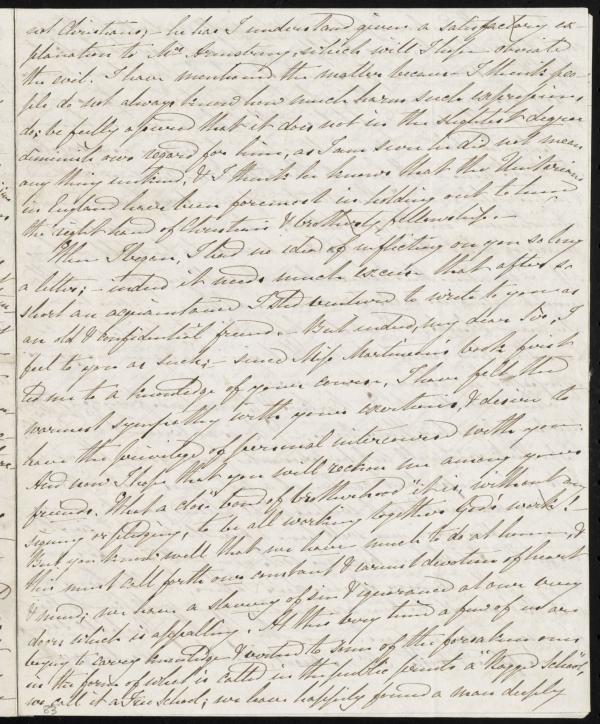 not Christians; – he has I understand given a satisfactory ex-
planation to Mrs Armstrong, which will I hope obviate
the evil. I have mentioned the matter because I think peo-
ple do not always know how much harm such expressions
do; be fully assured that it does not in the slightest degree
diminish our regard for him, as I am sure he did not mean
any thing unkind, & I think he knows that the Unitarians
in England have been foremost in holding out to him
the right hand of Christian & brotherly fellowship. –
When I began, I had no idea of inflicting on you so long
a letter; – indeed it needs much excuse that after so
short an acquaintance I shd venture to write to you as
an old & confidential friend. But indeed, my dear Sir, I
feel to you as such; – since Miss Martineau's book first
led me to a knowledge of your course, I have felt the
warmest sympathy with your exertions, & desire to
have the privilege of personal intercourse with you.
And now I hope that you will reckon me among your
friends. What a close "band of brotherhood" it is, without any
signing or pledging, to be all working together God's work! –
But you know well that we have much to do at home, &
this must call forth our constant & earnest devotion of heart
& mind; we have a slavery of sin & ignorance at our very
doors which is appalling. At this very time a few of us are
trying to carry knowledge & to some of the forsaken ones
in the form of what is called in the public prints a "Ragged School",
we call it a Free School; we have happily found a man deeply
83